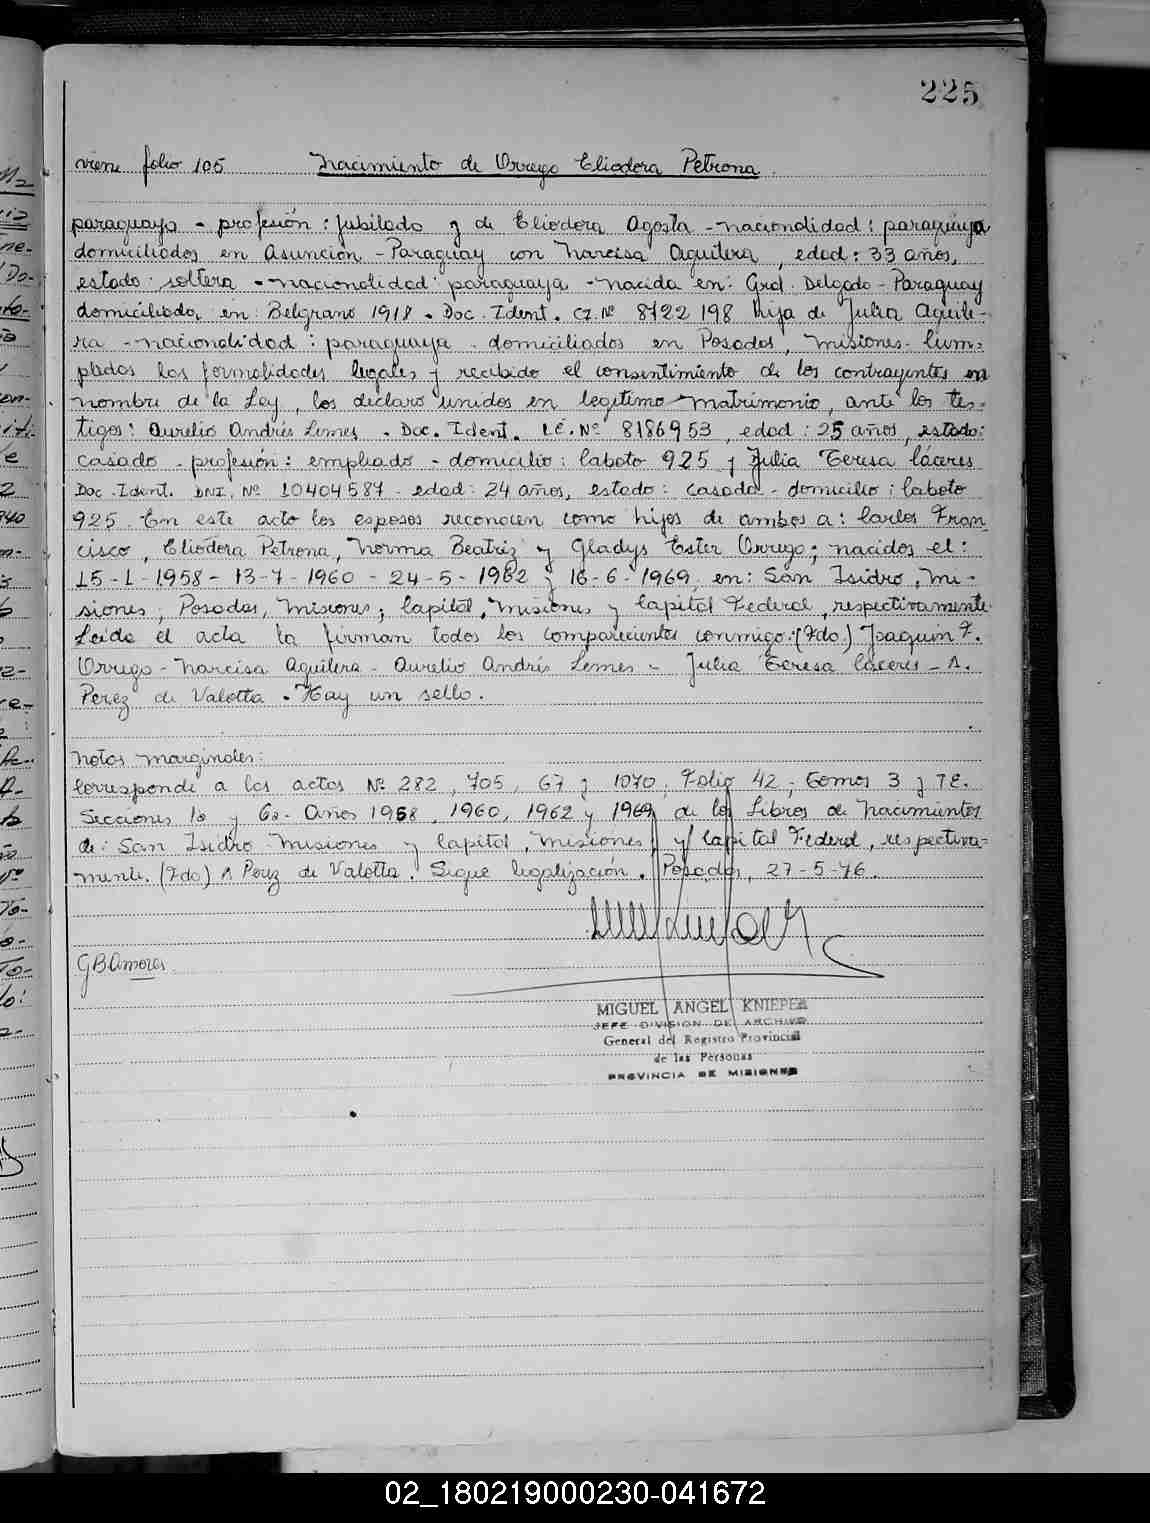 225
viene folio 105 Nacimiento de Orrego Eliodora Petrona.
paraguaya - profesión: jubilado y de Eliodora Agosta - nacionalidad: paraguaya
domiciliados en Asunción - Paraguay con Narcisa Aguilera, edad: 33 años,
estado soltera - nacionalidad: paraguaya - nacida en: Gral. Delgado - Paraguay
domiciliada en: Belgrano 1918 - Doc. Ident. CI. Nº 8122198 hija de Julia Aguile-
ra - nacionalidad: paraguaya - domiciliados en Posadas, Misiones. Cum-
plidas las formalidades legales y recibido el consentimiento de los contrayentes en
nombre de la Ley, los declaro unidos en legítimo matrimonio, ante los tes-
tigos: Aurelio Andrés Lemes - Doc. Ident. LE. Nº 8186953, edad: 25 años, estado:
casado - profesión: empleado - domicilio: Caboto 925 y Julia Teresa Cáceres
Doc. Ident. DNI. Nº 10404587 - edad: 24 años, estado: casada - domicilio: Caboto
925. En este acto los esposos reconocen como hijos de ambos a: Carlos Fran-
cisco, Eliodora Petrona, Norma Beatriz y Gladys Ester Orrego; nacidos el:
15-1-1958 - 13-7-1960 - 24-5-1962 y 16-6-1969, en: San Isidro, Mi-
siones; Posadas, Misiones; Capital, Misiones y Capital Federal, respectivamente.
Leida el acta la firman todos los comparecientes conmigo: (Fdo.) Joaquín F.
Orrego - Narcisa Aguilera - Aurelio Andrés Lemes - Julia Teresa Cáceres - A.
Perez de Valotta. Hay un sello.
Notas marginales:
Corresponde a las actas Nº 282, 705, 67 y 1070, Folio 42, Tomos 3 y 7E.
Secciones 1º y 6º - Años 1958, 1960, 1962 y 1969 de los Libros de Nacimientos
de: San Isidro - Misiones y Capital, Misiones y Capital Federal, respectiva-
mente. (Fdo) A Perez de Valotta. Sigue legalización. Posadas, 27-5-76.
GBAmores
MIGUEL ANGEL KNIEPER
JEFE DIVISION DE ARCHIVO
General del Registro Provincial
de las Personas
PROVINCIA DE MISIONES
02_180219000230-041672